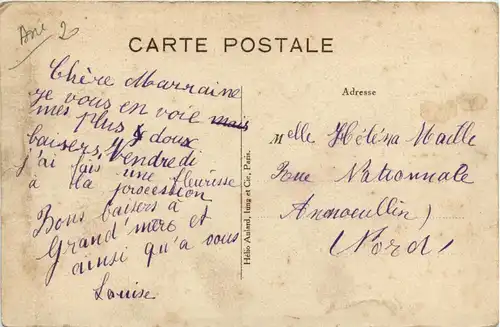 Ani 2
CARTE POSTALE
Chère Marraine
je vous en voie mais
mes plus doux
baisers, Vendredi
j'ai fais une fleurisse
à la procession
Bons baisers à
Grand'mère et
ainsi qu'a vous
Louise
Hélio Aulard, Iung et Cie, Paris.
Adresse
Melle Hélèna Maille
Rue Nationnale
Annoeullin)
Nord